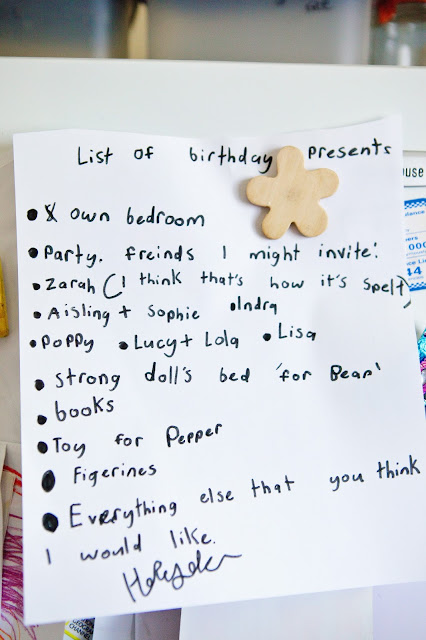 List of birthday presents
• own bedroom
• Party. freinds I might invite:
• Zarah (I think that's how it's spelt)
• Aisling + Sophie • Indra
• Poppy • Lucy + Lola • Lisa
• strong doll's bed 'for Bear'
• books
• Toy for Pepper
• Figerines
• Everything else that you think
I would like.